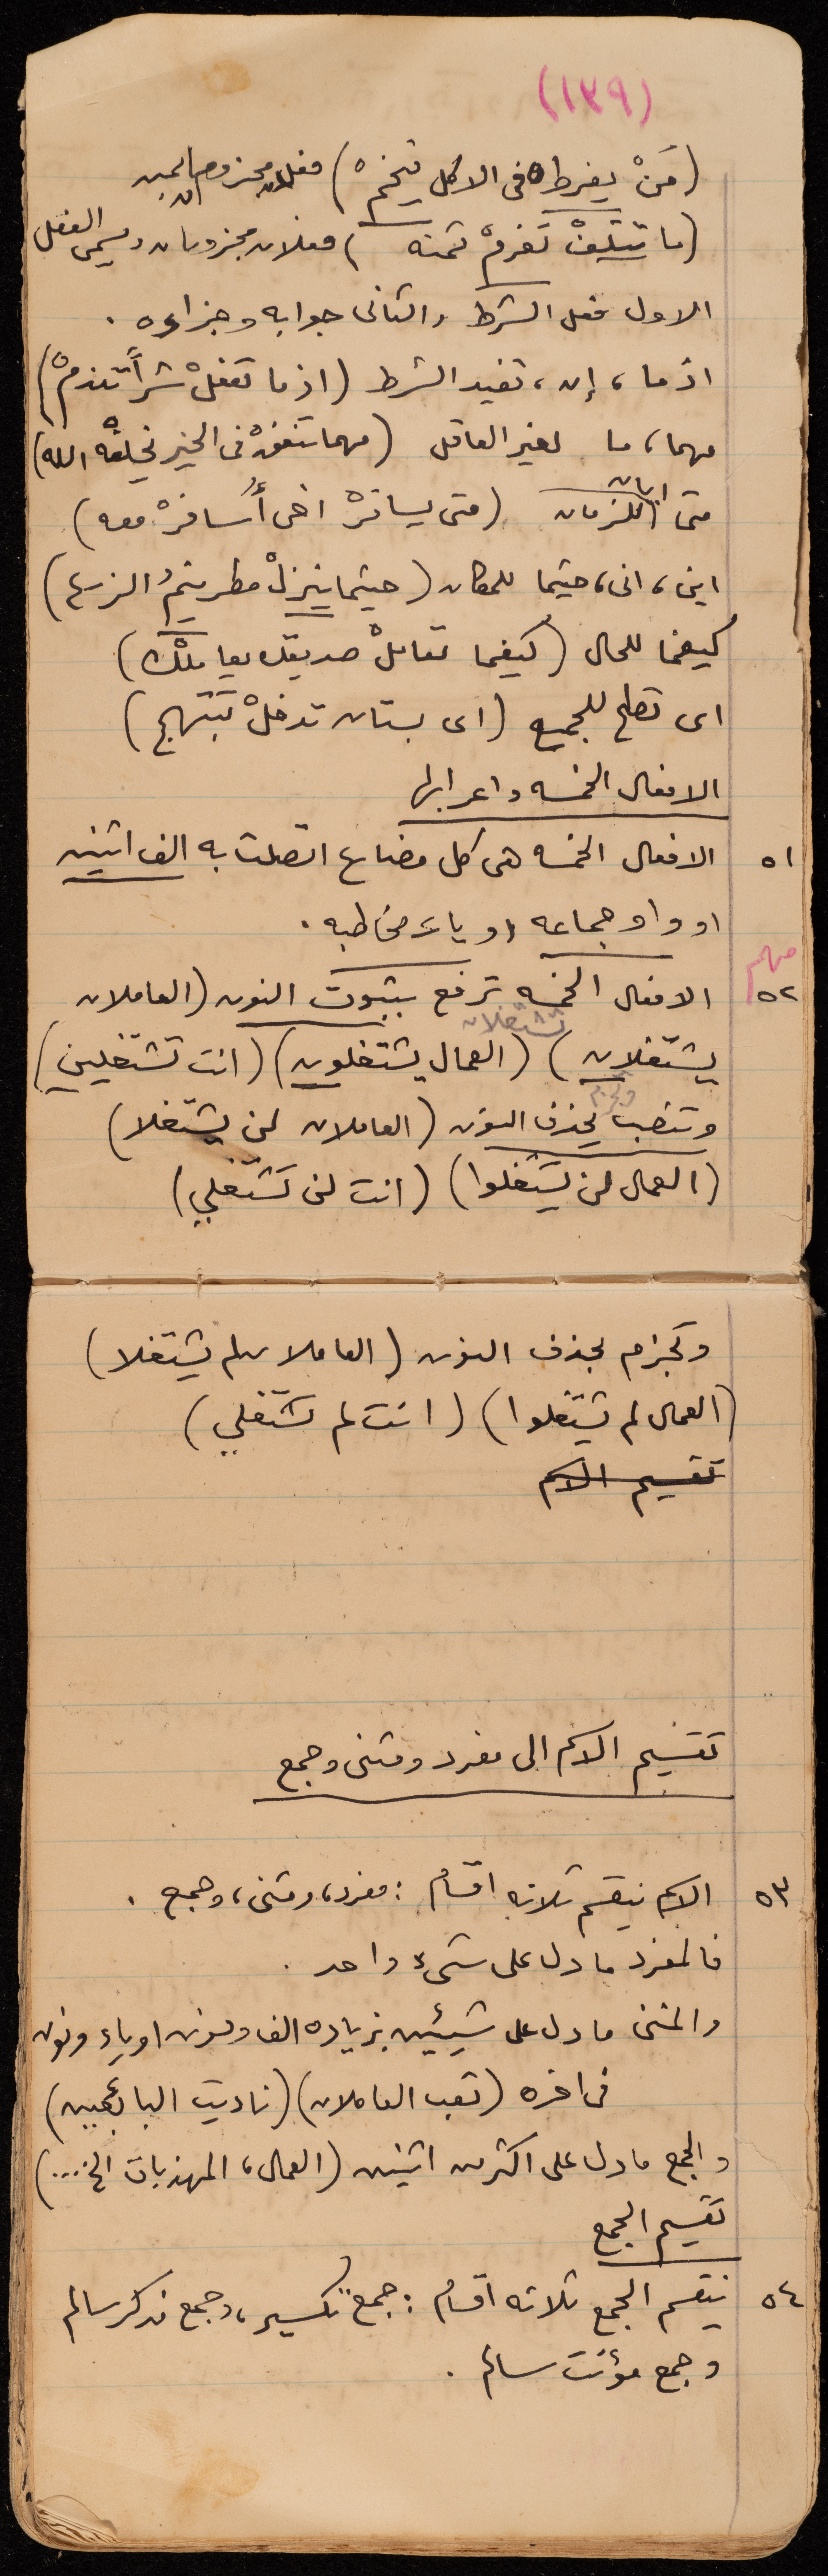 (١٣٩)
(مَنْ يفرط فى الاكل يتخمْ) فعلان مجزومان
(ما تتلفْ تغرمْ ثمنه) فعلان مجزومان ويسمى الفعل
الاول فعل الشرط والثانى جوابه وجزاءه .
اذما ، إن ، تفيد الشرط (اذما تفعلْ شراً تندمْ)
مهما ، ما لغير العاقل (مهما تنفقْ فى الخير يخلفْه الله)
متى ايان للزمان (متى يسافرْ اخى أُسافرْ معه)
اين ، انى ، حيثما للمكان (حيثما ينزلْ مطر ينمُ الزرع)
كيفما للحال (كيفما تعاملْ صديقك يعاملْك)
اى تصلح للجميع (اى بستان تدخلْ تبتهج)
الافعال الخمسه واعرابها
٥١ الافعال الخمسه هى كل مضارع اتصلت به الف اثنين
او واو جماعه او ياء مخاطبه .
مهم
٥٢ الافعال الخمسه ترفع بثبوت النون (العاملان
تشتغلان
يشتغلان) (العمال يشتغلون) (انت تشتغلين)
وتجزم
وتنصب بحذف النون (العاملان لن يشتغلا)
(العمال لن يشتغلوا) (انت لن تشتغلي)
وتجزم بحذف النون (العاملان لم يشتغلا)
(العمال لم يشتغلوا) (انت لم تشتغلي)
تقسيم الاسم
تقسيم الاسم الى مفرد ومثنى وجمع
٥٣ الاسم ينقسم ثلاثه اقسام : مفرد ، ومثنى ، وجمع .
فالمفرد ما دل على شىء واحد .
والمثنى ما دل على شيئين بزياده الف ونون او ياء ونون
فى اخره (تعب العاملان) (ناديت البائعيين)
والجمع ما دل على اكثر من اثنين (العمال ، المهذبات الخ...)
تقسيم الجمع
٥٤ ينقسم الجمع ثلاثه اقسام : جمع تكسير ، وجمع مذكر سالم
وجمع مؤنث سالم .